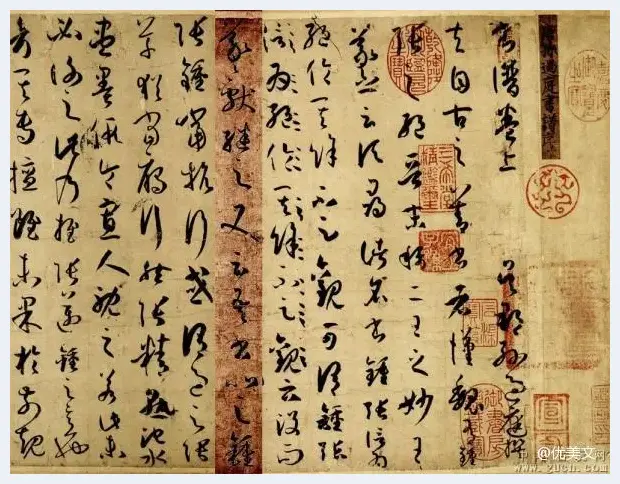 書譜卷上 吳郡孫過庭撰
夫自古之善書者漢魏有鍾
張之絕晉末稱二王之妙王
羲之云頃尋諸名書鍾張信為
絕倫其餘不足觀可謂鍾張
絕倫其餘不足觀云沒而
羲獻繼之又云吾書比之鍾
張鍾當抗行或謂過之張
草猶當雁行然張精熟池水
盡墨假令寡人耽之若此未
必謝之此乃推張邁鍾之意也
考其專擅雖未果於前規
@优美文网